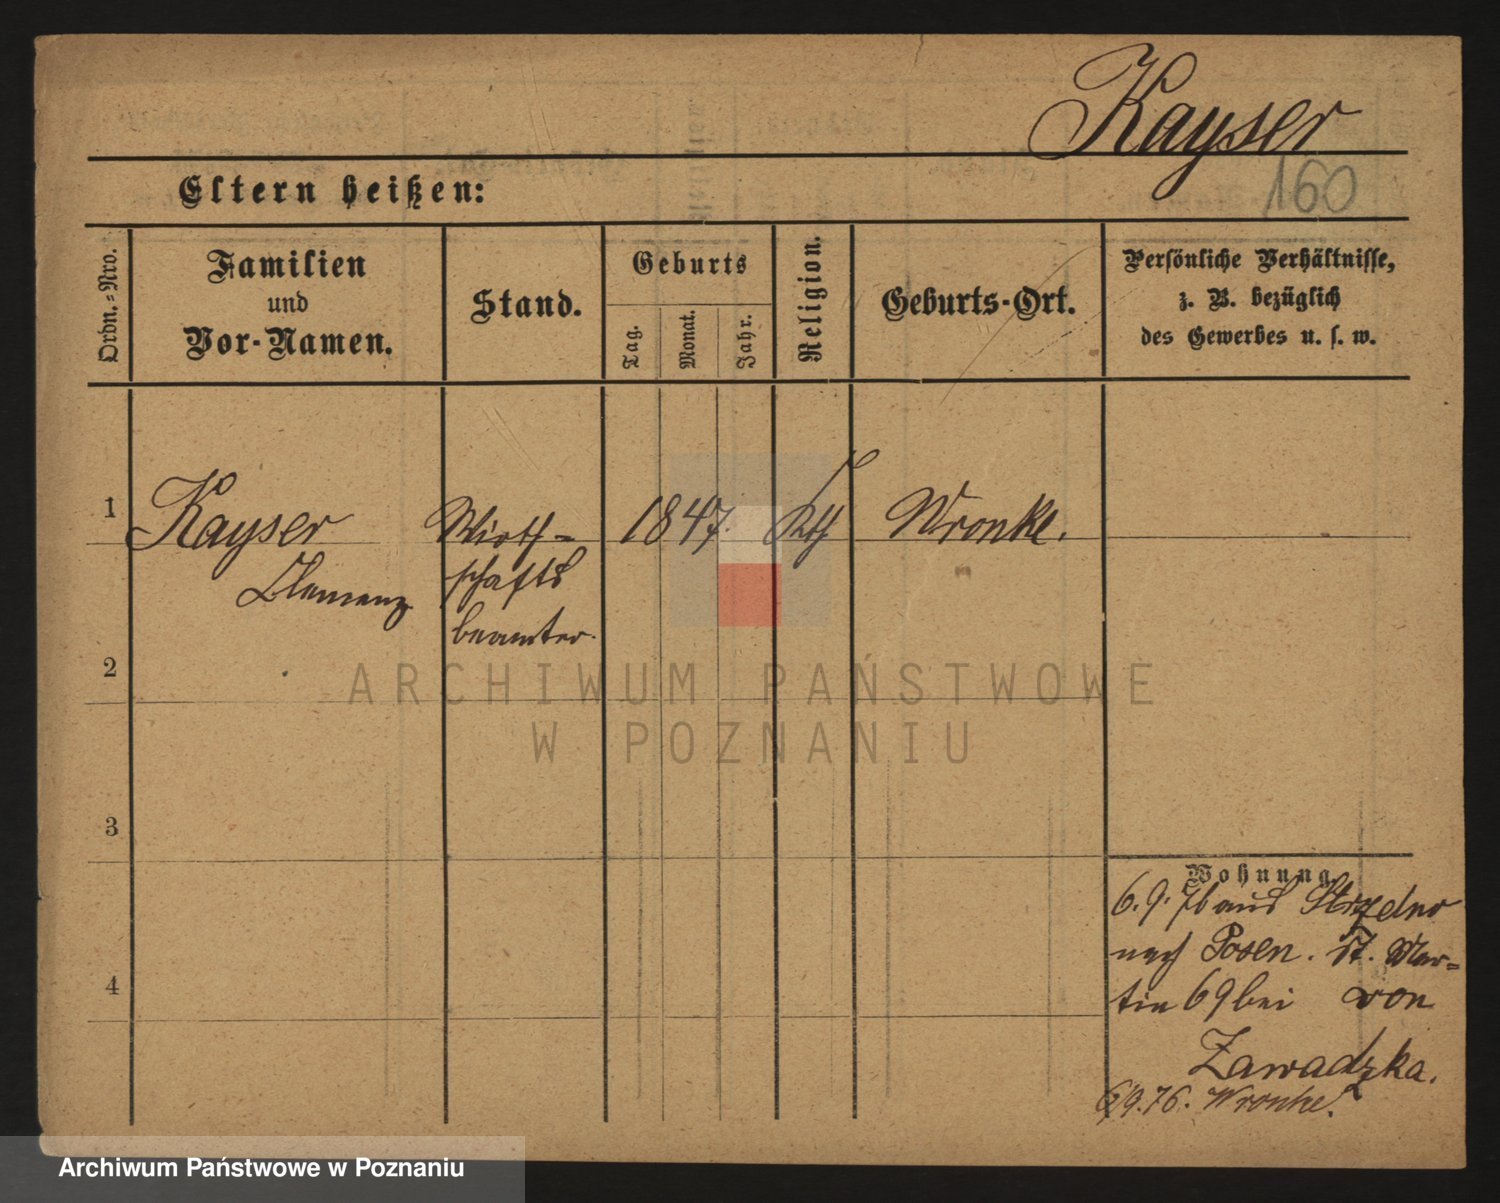 Kayser
160
Eltern heißen:
Ordn.-Nro.
Familien
und
Vor-Namen.
Stand.
Geburts
Tag.
Monat.
Jahr.
Religion.
Geburts-Ort.
Persönliche Verhältnisse,
z. B. bezüglich
des Gewerbes u. s. w.
1
Kayser
Clemenz
Wirth-
schafts
beamter.
1847.
Kth
Wronke.
2
3
4
Wohnung.
6. 9. 76 aus Strzelno
nach Posen. St. Mar-
tin 69 bei von
Zawadzka.
6/9.76. Wronke.
ARCHIWUM PAŃSTWOWE
W POZNANIU
Archiwum Państwowe w Poznaniu